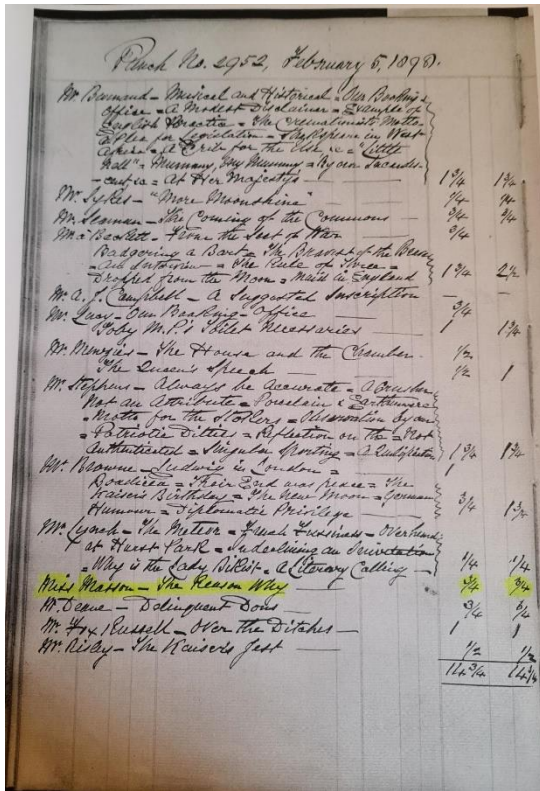 Punch No. 2952, February 5, 1898.
Mr Burnand – Musical and Historical = Our Booking =
office = A Modest Disclaimer = Example of
English Practice = The Cremationist's Motto
= Plea for Legislation = Shakspeare in West-
= A Crib for the Use = "Little
Nell" = Mummy, my Mummy = Byron
= At Her Majesty's 1 3/4 1 3/4
Mr. Sykes – "More Moonshine" 1/4
Mr. Seaman – The Coming of the Commons – 3/4 3/4
Mr à Beckett – From the Seat of War 3/4
Badgering a Bart = The Bravest of the Brave
= An Interview = The Rule of Three =
Dropped from the Moon = Maid in England 1 3/4 2 1/2
Mr. A. J. Campbell – A Suggested Inscription –
Mr. Lucy – Our Booking-Office – 3/4
Toby M.P.'s Toilet Necessaries – 1 1 3/4
Mr. Menzies – The House and the Chamber. 1/2
The Queen's Speech – 1/2 1
Mr. Stephens – Always be Accurate = A Crusher
Not an Attribute = Porcelain & Earthenware
Motto for the Stokers = Observation by our
= Patriotic Ditties = Reflection on the = Not
Authenticated = Singular Sporting = A Qualification 1 3/4 1 3/4
Mr. Browne – Ludwig in London = 1
Boadicea = Their End was peace = The
Kaiser's Birthday = The New Moon = German
Humour = Diplomatic Privilege – 3/4 1 3/4
Mr. Lynch – The Meteor = French = Overheard
at Hurst Park = Underlining an Invitation
= Why is the Lady = A Literary Calling – 1/4 1/4
Miss Masson – The Reason Why – 3/4 3/4
Mr. Deane – Delinquent Dons – 3/4
Mr. Fox Russell – Over the Ditches – 1 1
Mr. Risley – The Kaiser's Jest – 1/2 1/2
14 3/4 14 3/4